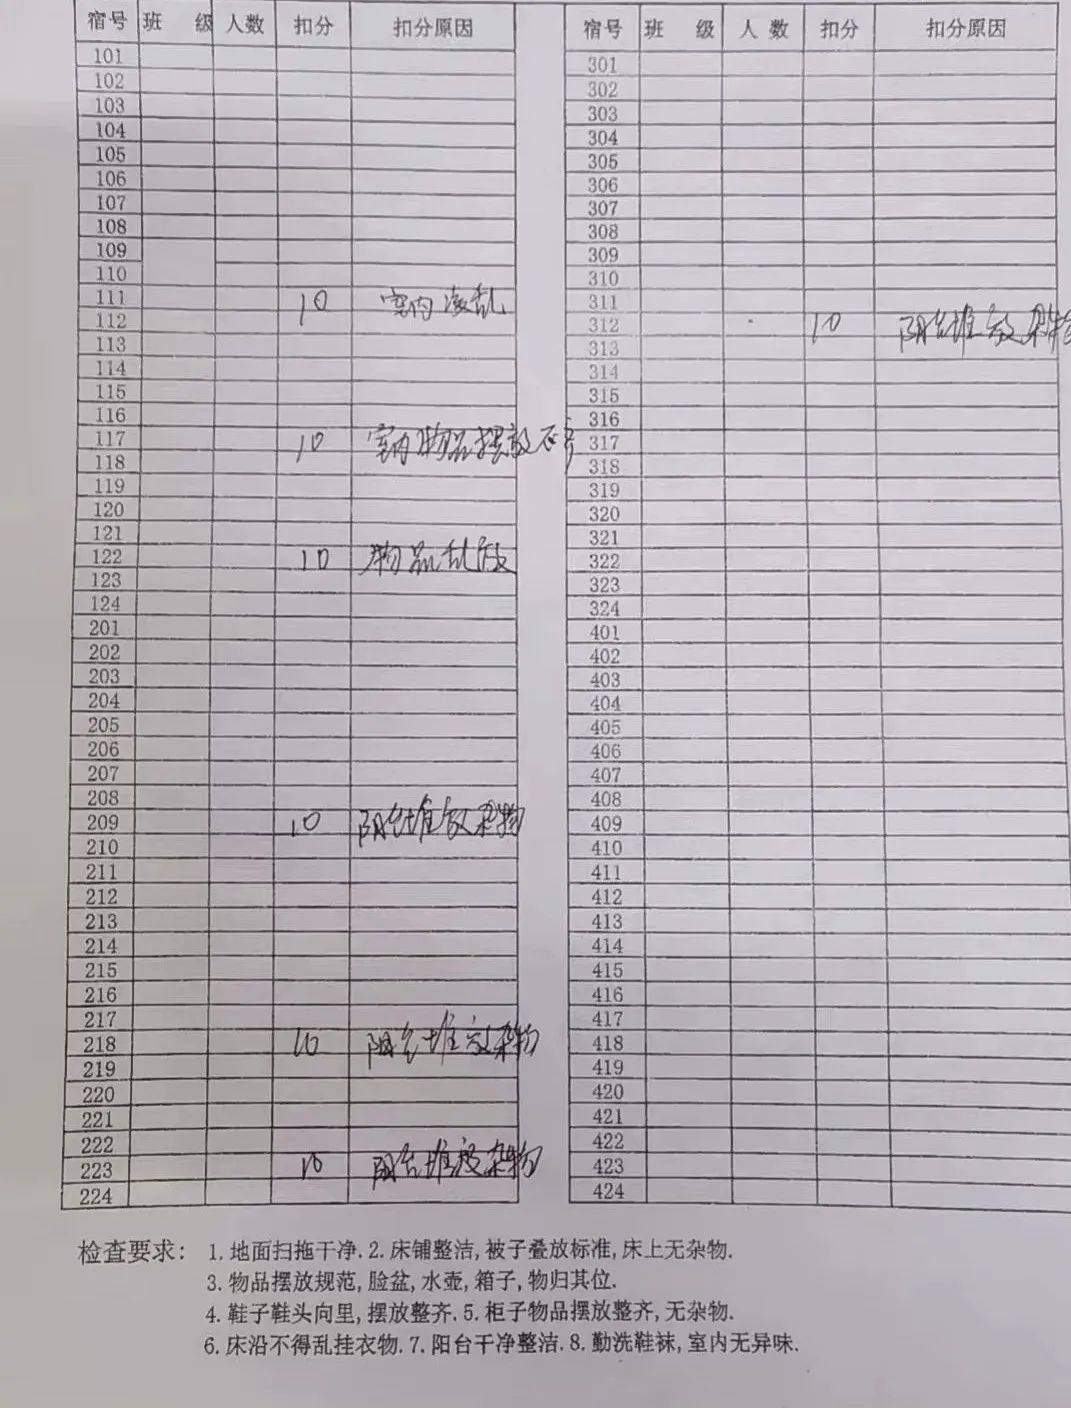 宿号 班 级 人数 扣分 扣分原因
101
102
103
104
105
106
107
108
109
110
111 10 室内凌乱
112
113
114
115
116
117 10 室内物品摆放不齐
118
119
120
121
122 10 物品乱放
123
124
201
202
203
204
205
206
207
208
209 10 阳台堆放杂物
210
211
212
213
214
215
216
217
218 10 阳台堆放杂物
219
220
221
222
223 10 阳台堆放杂物
224
宿号 班 级 人 数 扣分 扣分原因
301
302
303
304
305
306
307
308
309
310
311
312 10 阳台堆放杂物
313
314
315
316
317
318
319
320
321
322
323
324
401
402
403
404
405
406
407
408
409
410
411
412
413
414
415
416
417
418
419
420
421
422
423
424
检查要求: 1.地面扫拖干净.2.床铺整洁,被子叠放标准,床上无杂物.
3.物品摆放规范,脸盆,水壶,箱子,物归其位.
4.鞋子鞋头向里,摆放整齐.5.柜子物品摆放整齐,无杂物.
6.床沿不得乱挂衣物.7.阳台干净整洁.8.勤洗鞋袜,室内无异味.